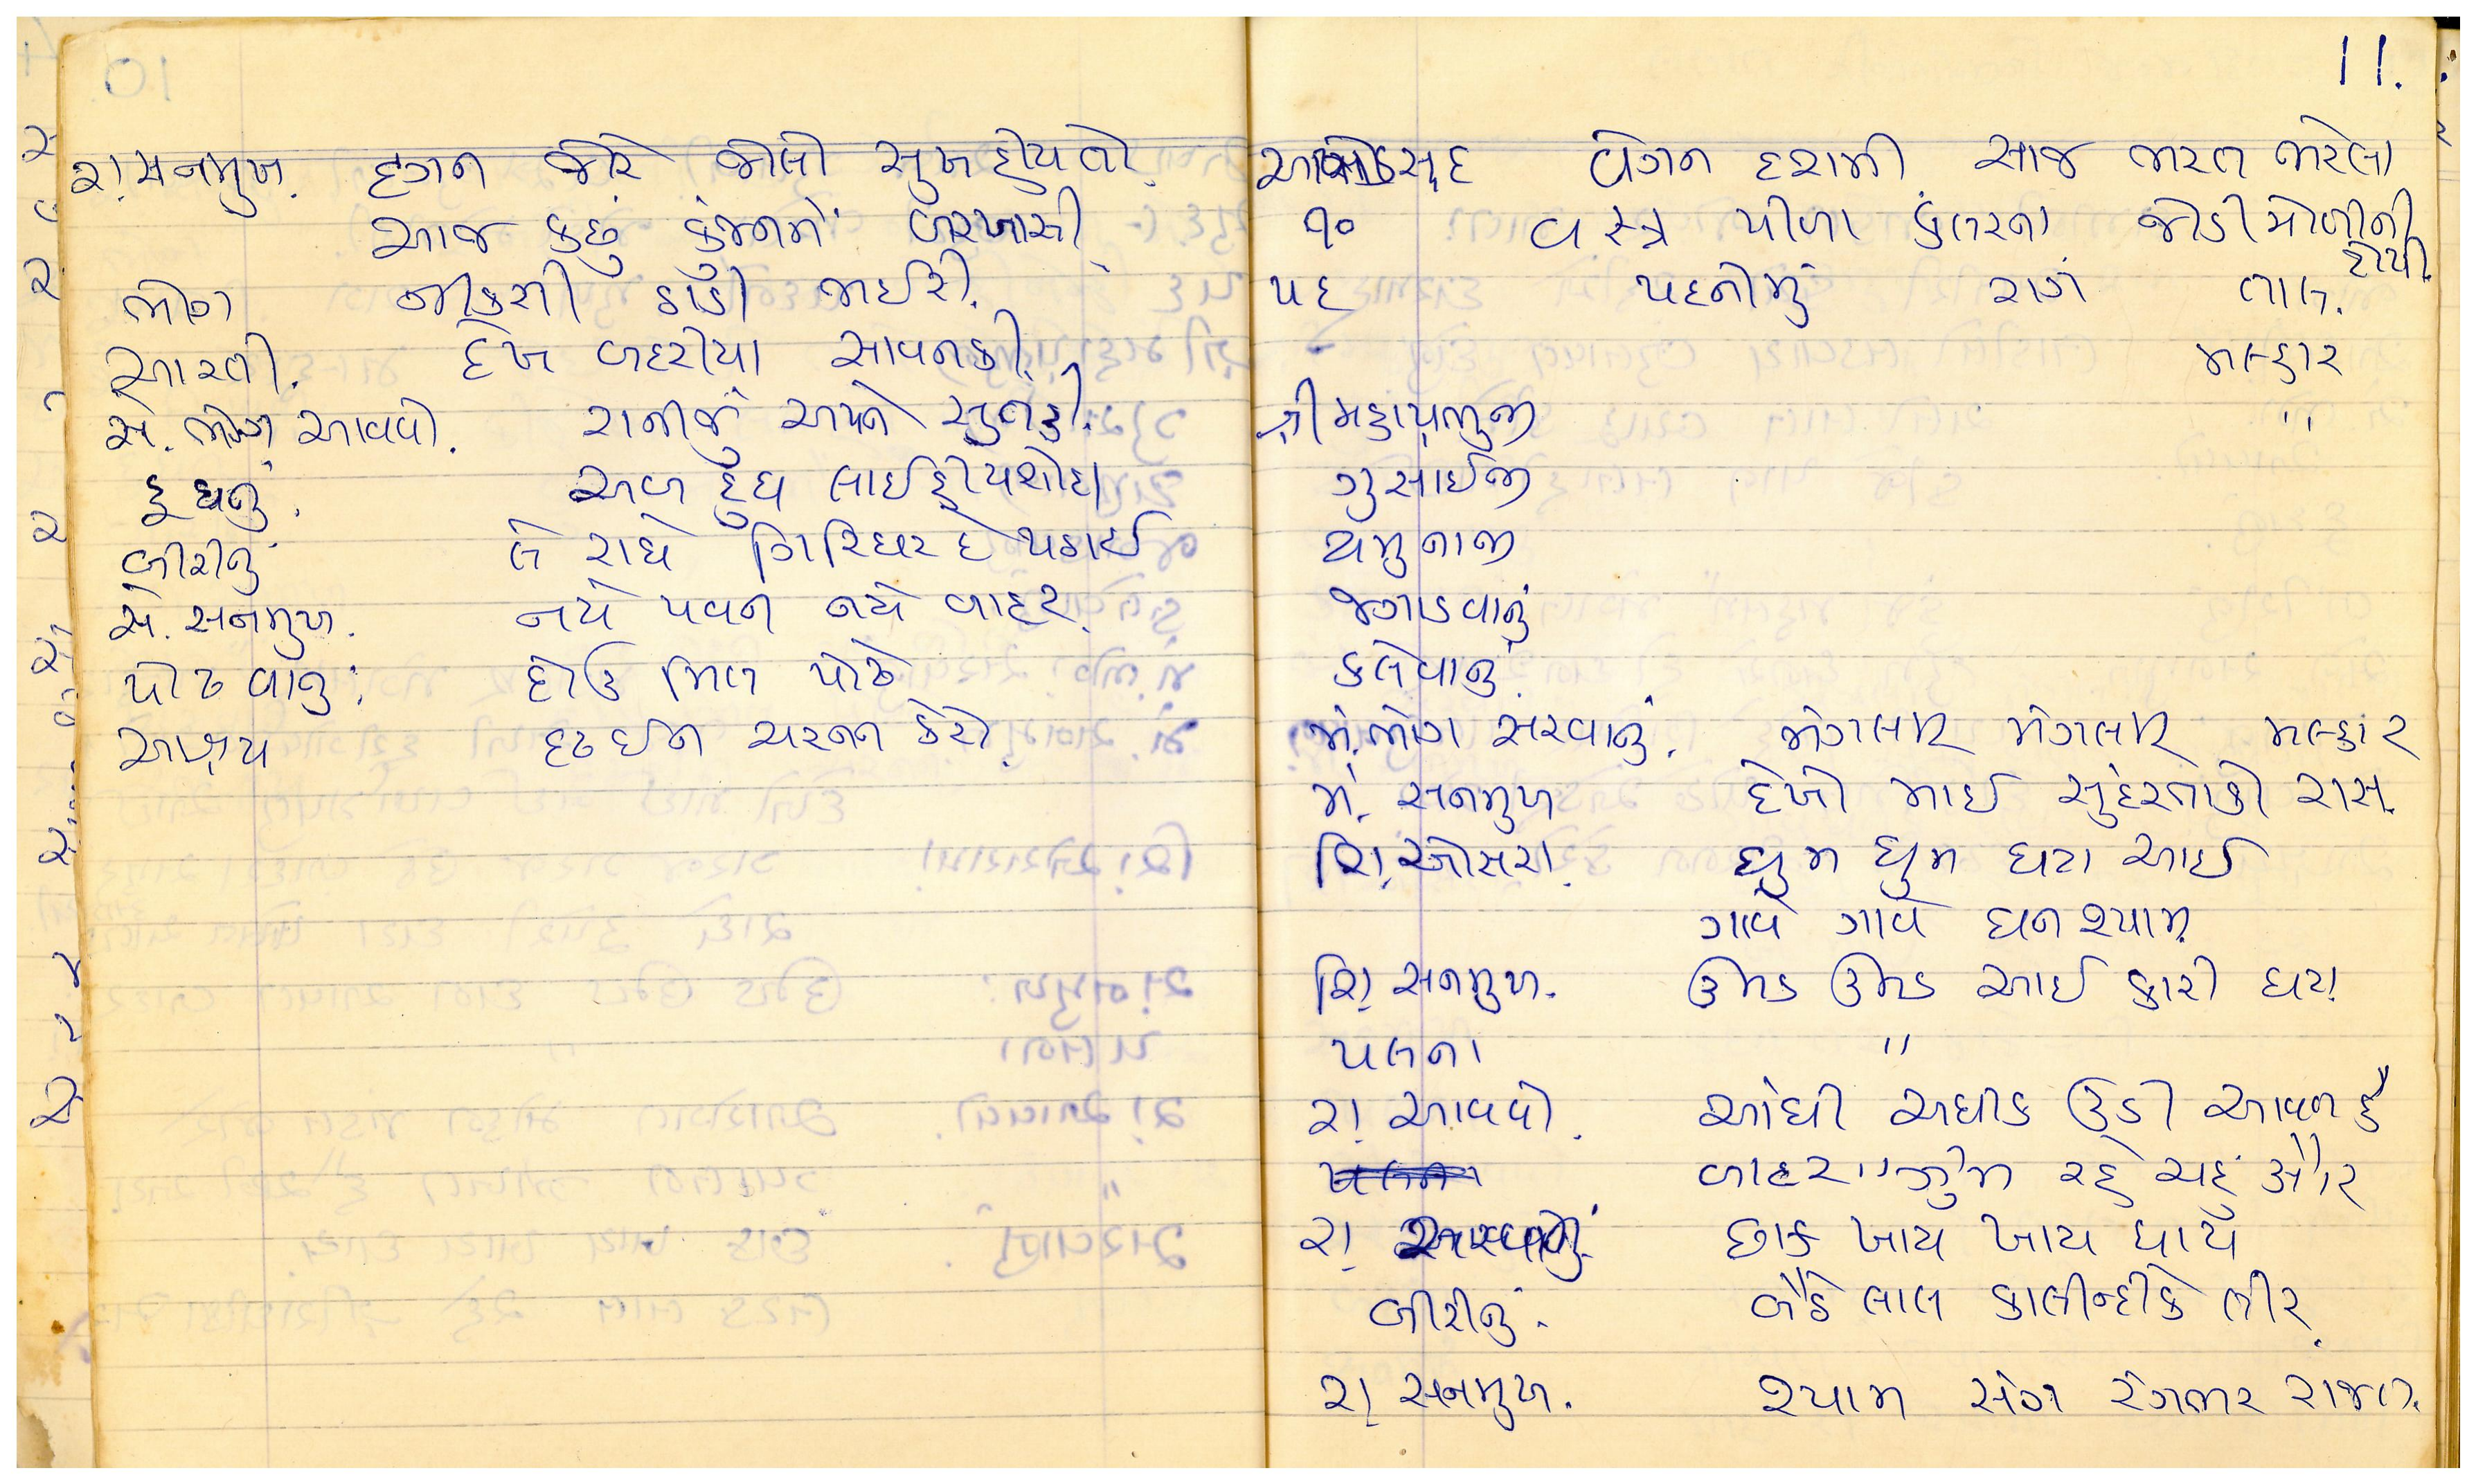 રા. સનમુખ. દ્રગન જોરે જોલો સુખ હોય તો.
આજ કછું કુંજનમેં બરખાસી.
ભોગ જીકસી ઠાડી ભઈરી.
આરતી. દેખ બદરીયા સાવનકી.
સે. ભોગ આવવો. રાનીજું અપને સુતહી.
દૂધનું. અબ દૂધ લાઈ હી યશોદા
બીરીનું લે રાધે ગિરિધર દે પઠાઈ
સે. સનમુખ. નયે પવન નયે બાદર.
પોઢવાનું: દોઉ મિલ પોઢે
આશ્રય દ્રઢ ઈન ચરનન કેરો.
11.
સુદ બેગન દશમી. સાજ ભરત ભરેલા
૧૦ વસ્ત્ર પીળા કુંતરના જોડી મોળીની ટોપી.
પદ પદનીમું રાગ તાલ.
મલ્હાર
શ્રી મહાપ્રભુજી "
ગુસાઈજી
યમુનાજી
જગાડવાનું
કલેવાનું.
મં. ભોગ સરવાનું. મંગલમ્ મંગલમ્ મલ્હાર
મં. સનમુખ દેખો માઈ સુંદરતાકો રાસ.
શિ. ઓસરા. ઘુમ ઘુમ ઘટા આઈ
ગાવે ગાવે ઘનશ્યામ.
શિ. સનમુખ. ઉમડ ઉમડ આઈ કારી ઘટા
પલના "
રા. આવવો. આંધી અધીક ઉડી આવત હૈ
બાદર ઝુમ રહે ચહું ઔર
રા. છાક ખાય ખાય ધાયે
બીરીનું. બૈઠે લાલ કાલીન્દીકે તીર.
રા. સનમુખ. શ્યામ સંગ રંગભર રાજત.